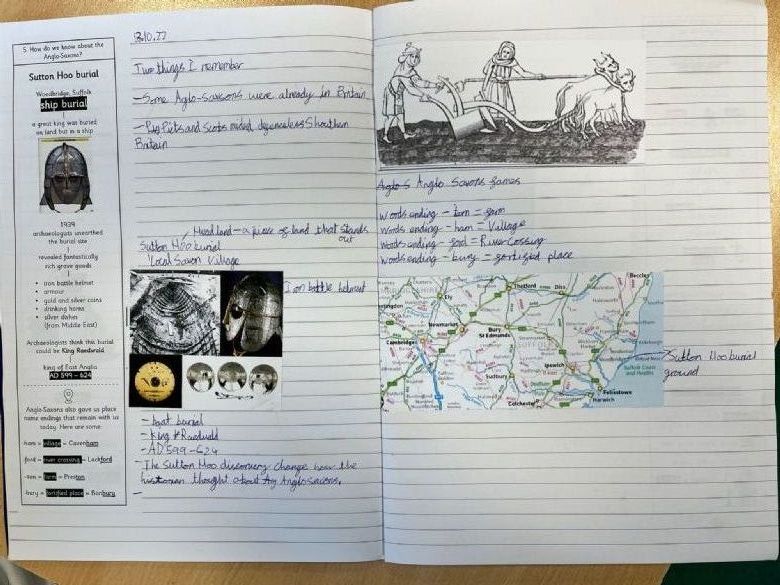 5. How do we know about the
Anglo-Saxons?
Sutton Hoo burial
Woodbridge, Suffolk
ship burial
a great king was buried
on land but in a ship
1939
archaeologists unearthed
the burial site
revealed fantastically
rich grave goods
iron battle helmet
armour
gold and silver coins
drinking horns
silver dishes
(from Middle East)
Archaeologists think this burial
could be King Raedwald
king of East Anglia
AD 599 – 624
Anglo-Saxons also gave us place
name endings that remain with us
today. Here are some:
-ham = village – Cavenham
-ford = river crossing – Lackford
-ton = farm – Preston
-bury = fortified place – Banbury
Two things I remember
-Some Aglo-saxsons were already in Britain
Picts and Scots
Britain
Headland - a piece of land that stands
out
Sutton Hoo burial
Local Saxon Village
Iron battle helment
- boat burial
- King Raedwald
- AD 599-624
- The Sutton Hoo discovery change how the
historian thought about Anglosaxons.
Anglo S Anglo Saxons
Words ending - ton = farm
Words ending - ham = Village
Words ending - ford = River Crossing
Words ending - bury = fortified place
Ely
Thetford
Diss
Beccles
Newmarket
Bury
St Edmunds
Cambridge
Sudbury
Ipswich
Suffolk Coast
and Heaths
Felixstowe
Harwich
Colchester
Sutton Hoo burial
ground